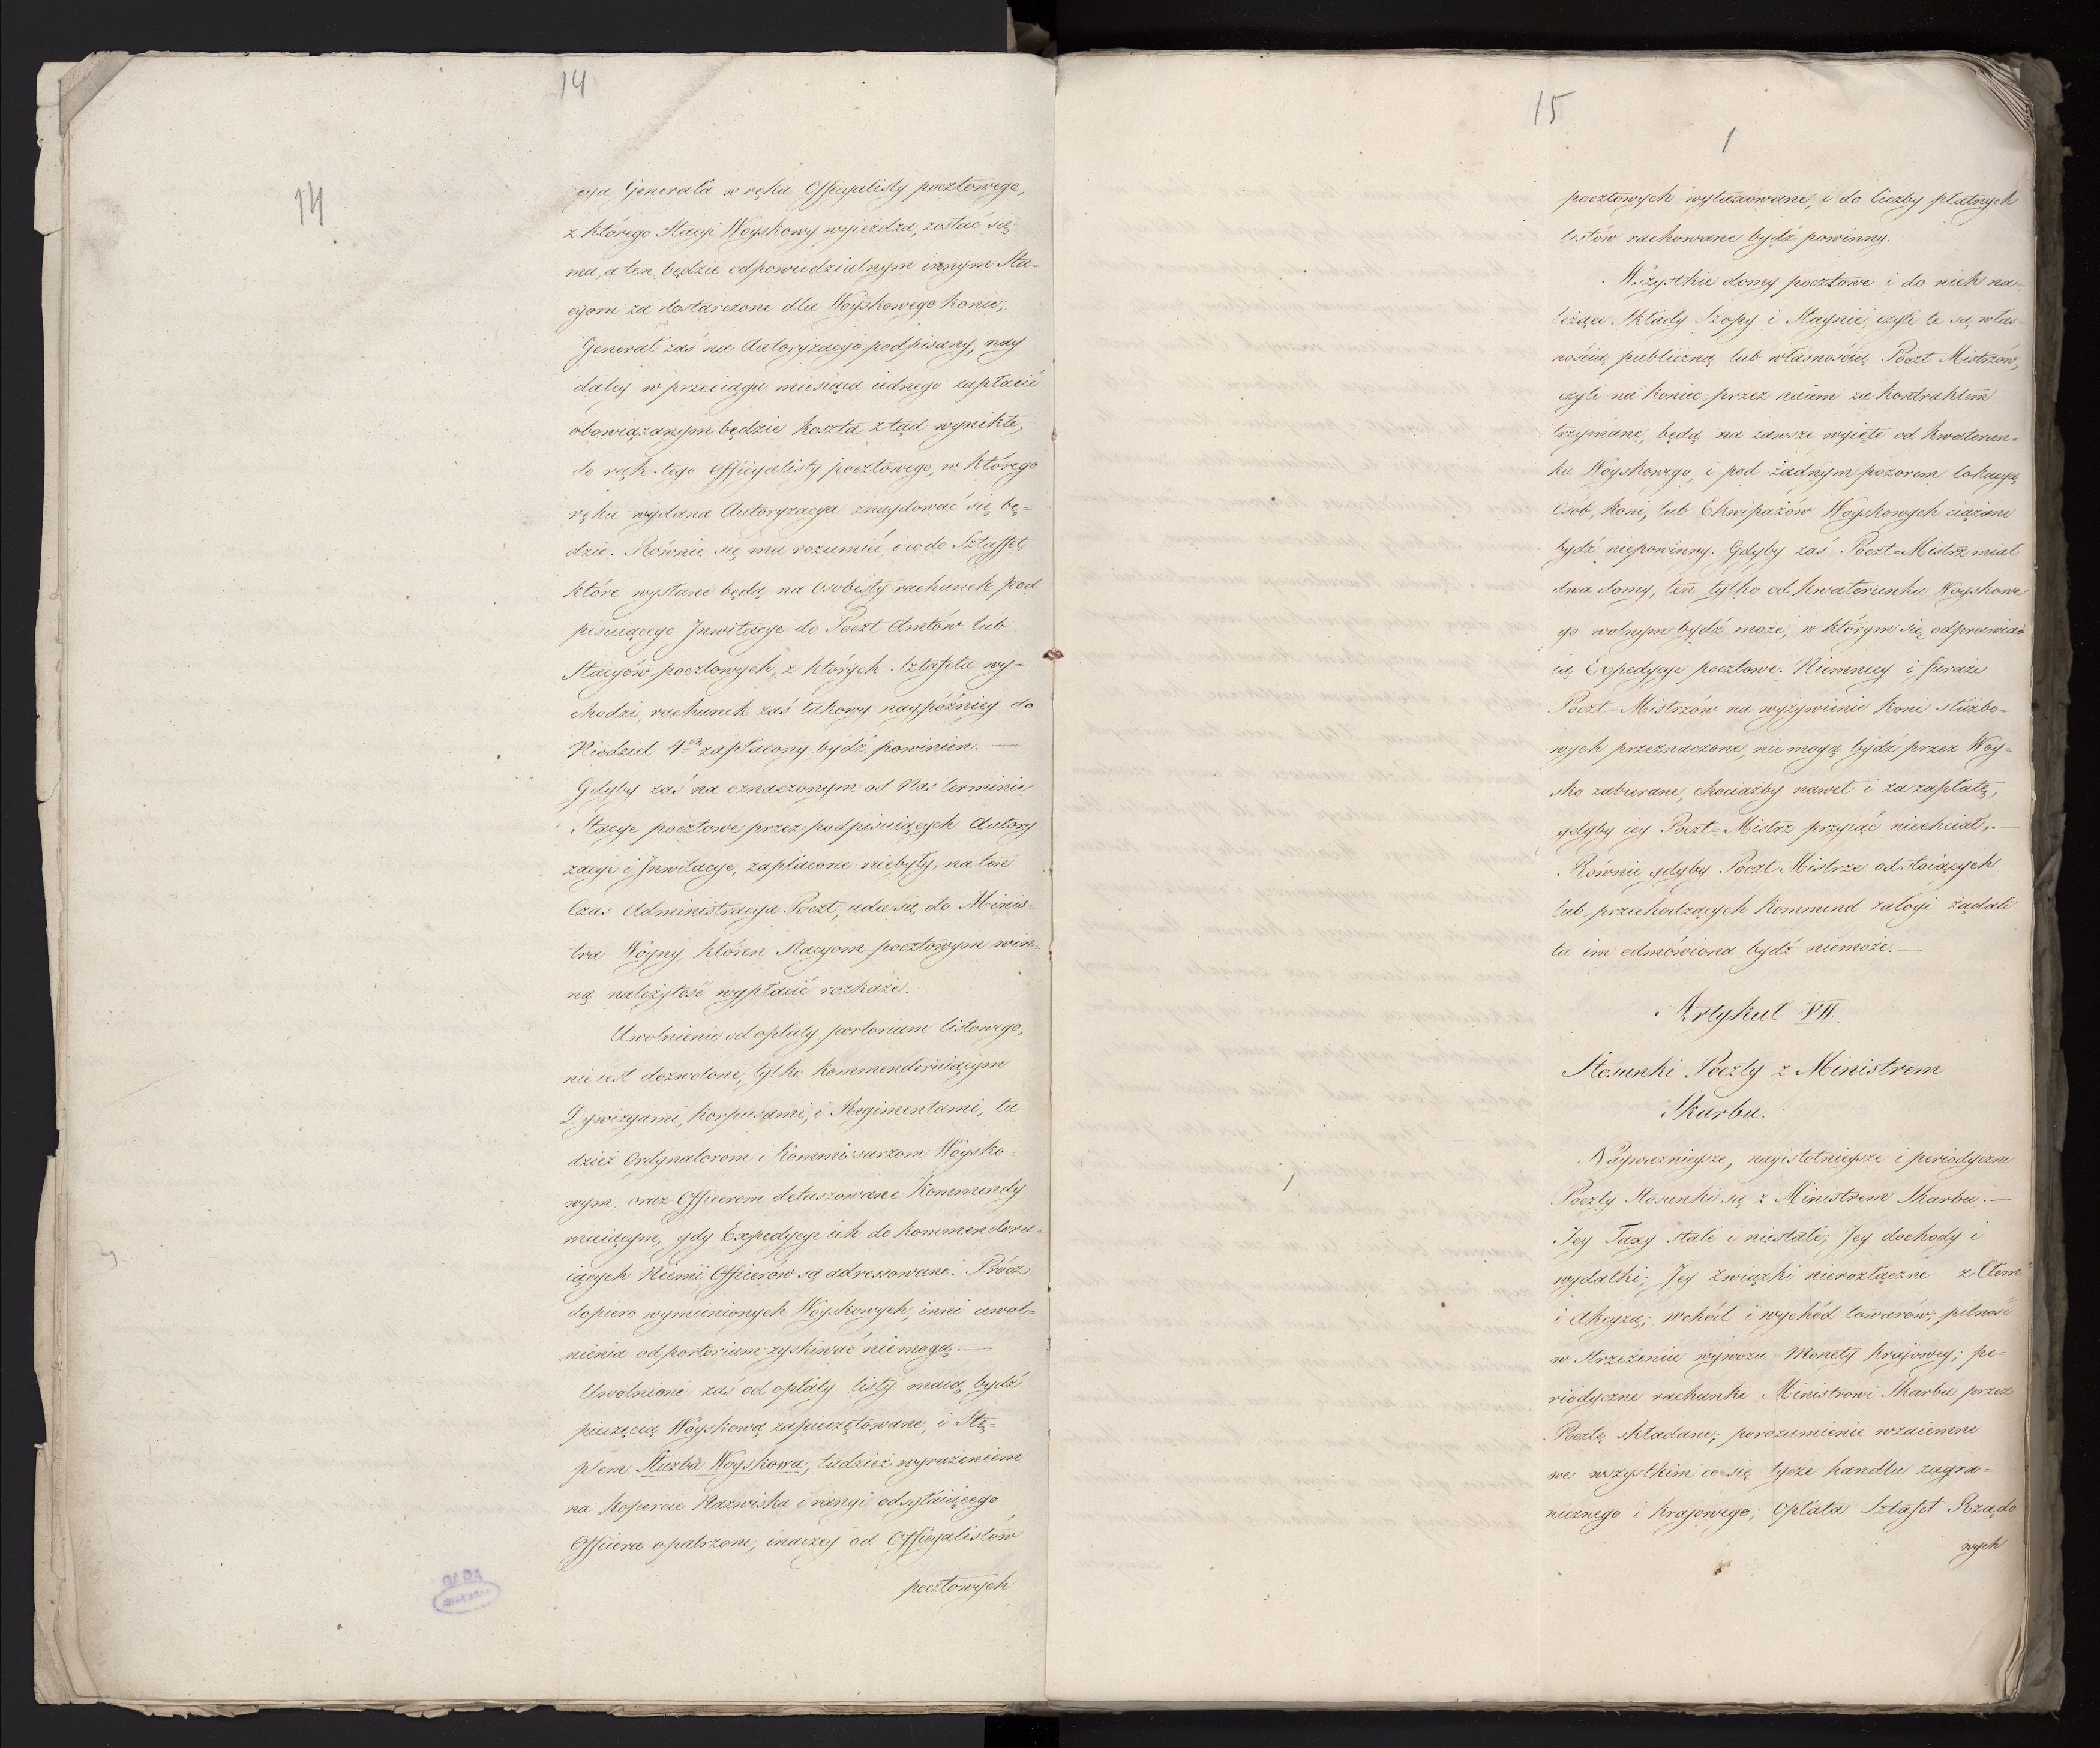 14
14
cya Generała w ręku Officyalisty pocztowego,
z którego Stacyi Woyskowy wyieżdza, zostać się
ma, a ten będzie odpowiedzialnym innym Sta=
cyom za dostarczone dla Woyskowego konie;
Generał zaś na Autoryzacyi podpisany, nay
daley w przeciągu miesiąca iednego zapłacić
obowiązanym będzie koszta ztąd wynikłe,
do rąk tego Officyalisty pocztowego, w którego
ręku wydana Autoryzacya znaydować się bę=
dzie. Równie się ma rozumieć, i co do Sztaffet,
które wysłane będą na osobisty rachunek pod
pisuiącego Inwitacye do Poczt Amtów lub
Stacyów pocztowych, z których Sztafeta wy=
chodzi, rachunek zaś takowy naypóźniey do
Niedziel 4ch zapłacony bydź powinien. —
Gdyby zaś na oznaczonym od Nas terminie
Stacye pocztowe przez podpisuiących Autory
zacye i Inwitacye, zapłacone niebyły, na ten
Czas Administracya Poczt, uda się do Minis=
tra Woyny, któren Stacyom pocztowym win=
ną należytość wypłacić rozkaże.
Uwolnienie od opłaty portorium listowego,
nie iest dozwolone, tylko kommenderuiącym
Dywizyami, Korpusami, i Regimentami, tu
dzież Ordynatorom i Kommissarzom Woysko=
wym, oraz Officerom detaszowane Kommendy
maiącym, gdy Expedycye ich do kommenderu=
iących Niemi Officerów są adressowane. Prócz
dopiero wymienionych Woyskowych, inni uwol=
nienia od portorium zyskiwać niemogą. —
Uwolnione zaś od opłaty listy maią bydź
pieczęcią Woyskową zapieczętowane, i Stę=
plem Służba Woyskowa, tudzież wyrażeniem
na kopercie Nazwiska i rangi odsyłaiącego
Officera opatrzone, inaczey od Officyalistów
pocztowych
15
1
pocztowych wytaxowane, i do liczby płatnych
listów rachowane bydź powinny.
Wszystkie domy pocztowe i do nich na=
leżące Składy Szopy i Staynie, czyli te są włas=
nością publiczną lub własnością Poczt Mistrzów,
czyli na koniec przez naiem za kontraktem
trzymane, będą na zawsze wyięte od kwaterun=
ku Woyskowego, i pod żadnym pozorem lokacyą
Osób, koni, lub Ekwipażów Woyskowych ciążone
bydź niepowinny. Gdyby zaś Poczt=Mistrz miał
dwa domy, ten tylko od kwaterunku Woyskowe
go wolnym bydź może, w którym się odprawia=
ią Expedycye pocztowe. Niemniey i furaże
Poczt=Mistrzów na wyżywienie koni służbo=
wych przeznaczone, nie mogą bydź przez Woy=
sko zabierane, chociażby nawet i za zapłatą,
gdyby iey Poczt=Mistrz przyiąć niechciał. —
Równie gdyby Poczt Mistrze od stoiących
lub przechodzących kommend załogi żądali
ta im odmówiona bydź niemoże. —
Artykuł VII.
Stosunki Poczty z Ministrem
Skarbu.
Nayważnieysze, nayistotnieysze i periodyczne
Poczty Stosunki są z Ministrem Skarbu. —
Jey Taxy stałe i niestałe; Jey dochody i
wydatki; Jey związki nierozłączne z Cłem
i Akcyzą; wchód i wychód towarów; pilność
w strzeżeniu wywozu Monety krajowey; pe=
riodyczne rachunki Ministrowi Skarbu przez
Pocztę składane; porozumienie wzaiemne
we wszystkim co się tycze handlu zagra=
nicznego i krajowego; Opłata Sztafet Rządo
wych